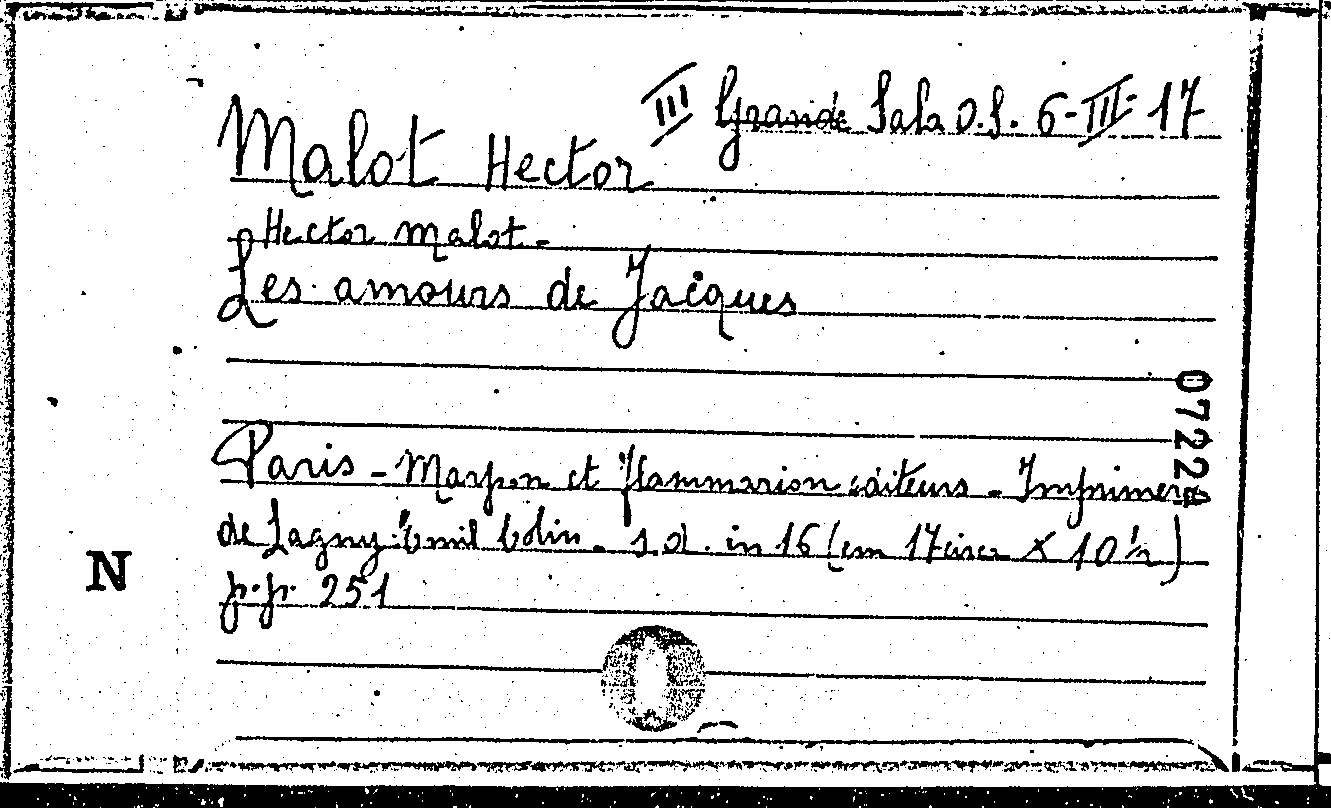 III Grande Sala D.S. 6-III-17
Malot Hector
Hector Malot -
Les amours de Jacques
07224
Paris - Marpon et Flammarion editeurs - Imprimerie
de Lagny: Emil Colin - s.d. in 16 (cm 17 circa X 10 ½)
p.p. 251
N